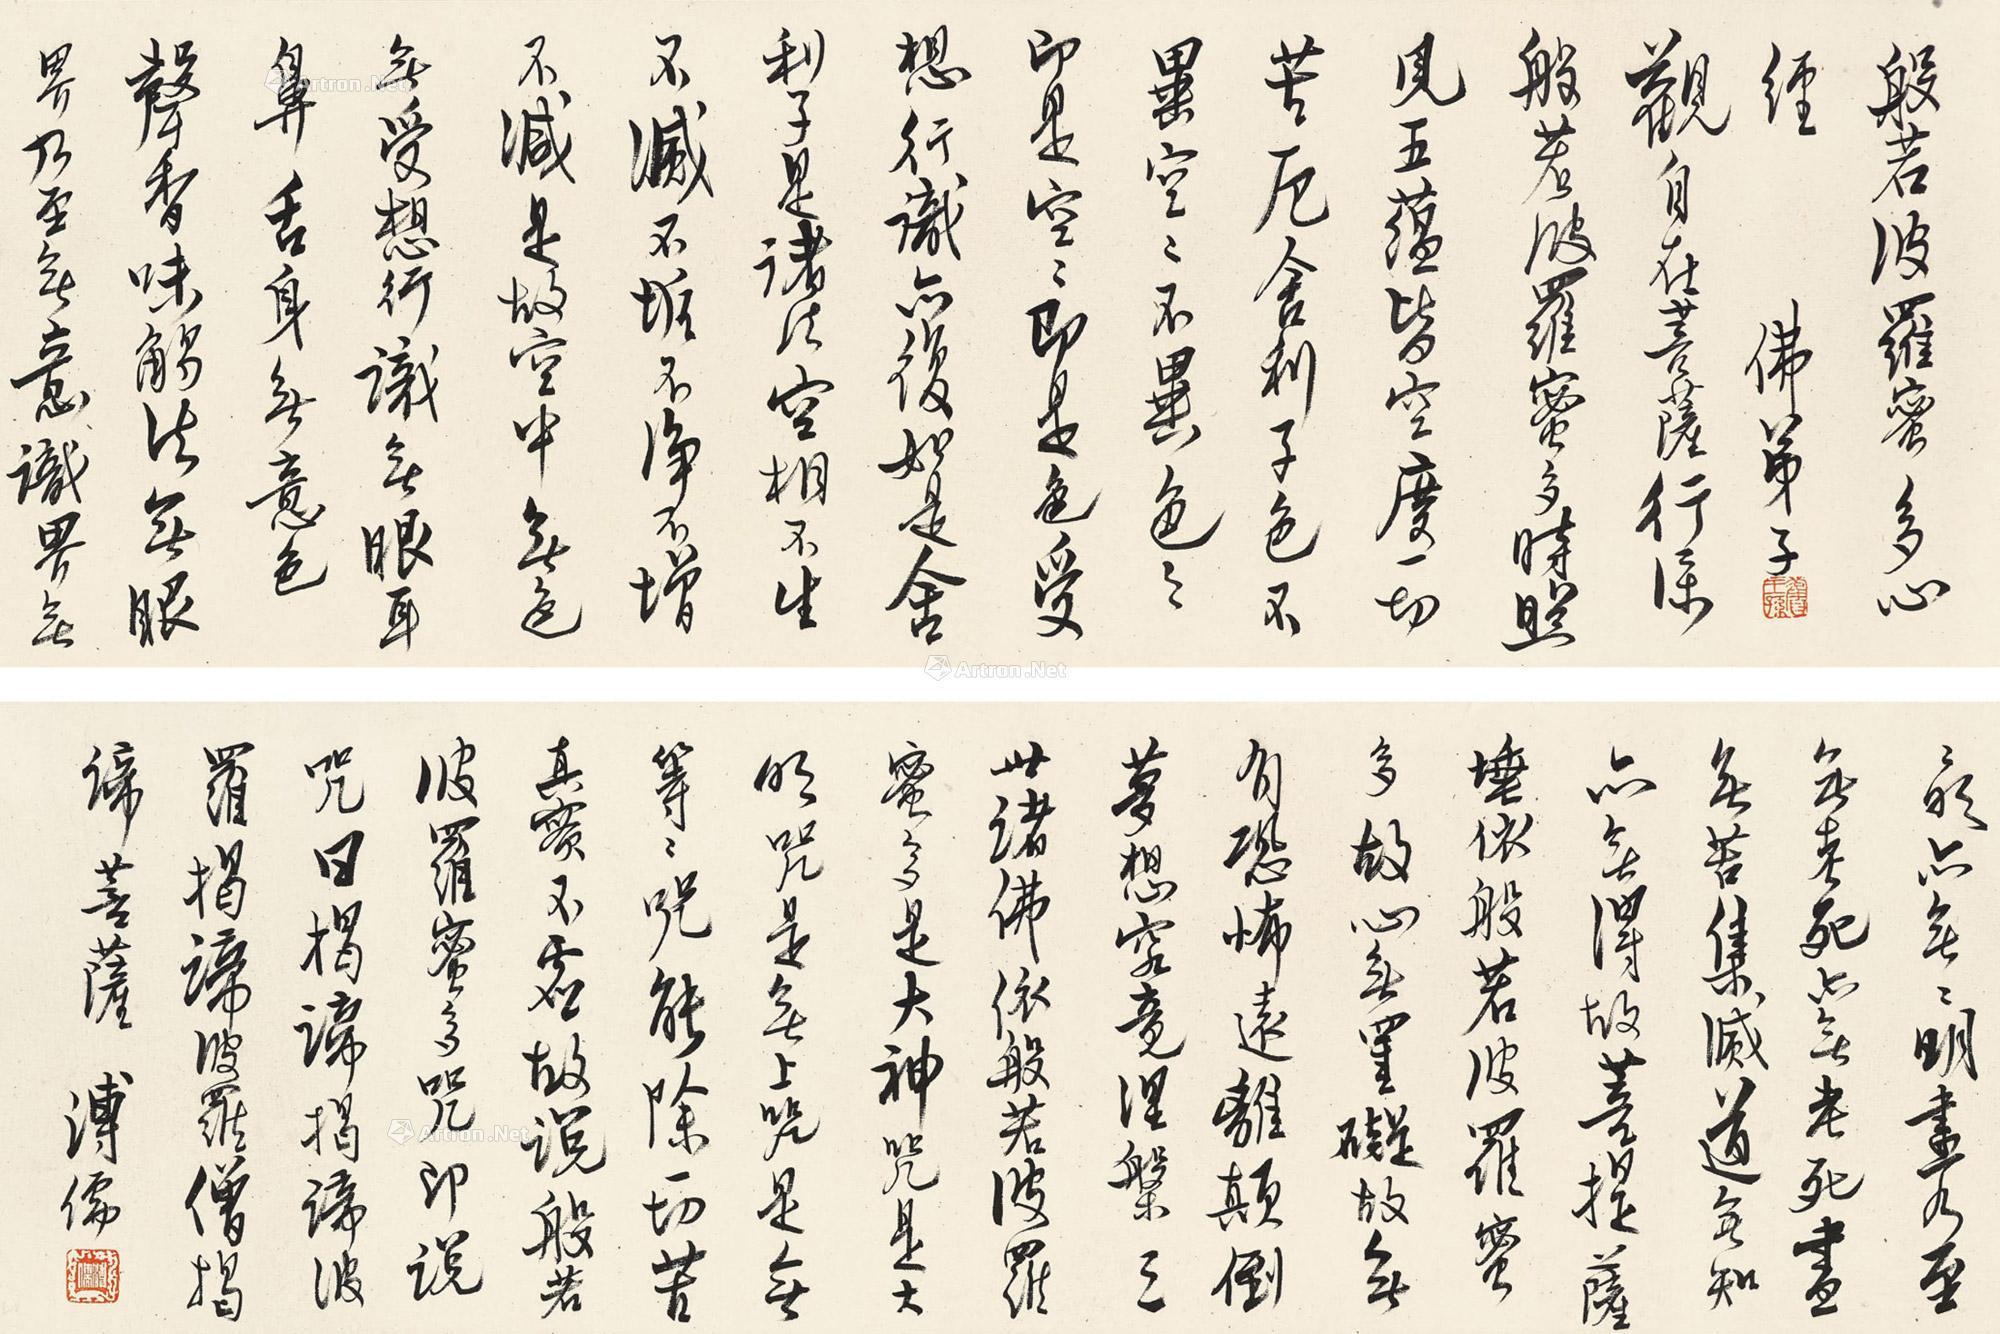 般若波羅蜜多心
經 佛弟子
觀自在菩薩行深
般若波羅蜜多時照
見五蘊皆空度一切
苦厄舍利子色不
異空〻不異色〻
即是空〻即是色受
想行識亦復如是舍
利子是諸法空相不生
不滅不垢不淨不增
不減是故空中無色
無受想行識無眼耳
鼻舌身無意色
聲香味觸法無眼
界乃至無意識界無
〻明亦無〻明盡乃至
無老死亦無老死盡
無苦集滅道無知
亦無得故菩提薩
埵依般若波羅蜜
多故心無罣礙故無
有恐怖遠離顛倒
夢想究竟涅槃三
世諸佛依般若波羅
蜜多是大神咒是大
明咒是無上咒是無
等〻咒能除一切苦
真實不虛故說般若
波羅蜜多咒即說
咒曰揭諦揭諦波
羅揭諦波羅僧揭
諦菩薩 溥儒
Artron.Net
Artron.Net
Artron.Net